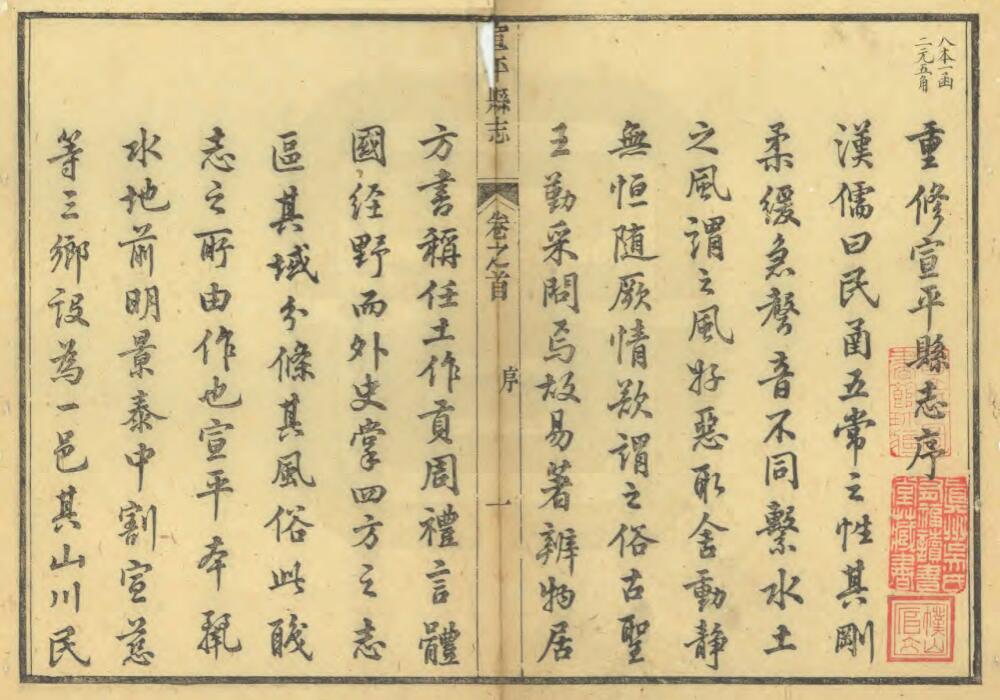 八本一函
二元五角
重修宣平縣志序
漢儒曰民函五常之性其剛
柔緩急聲音不同繫水土
之風謂之風好惡取舍動靜
無恒随厥情欲謂之俗古聖
王勤采問焉故易著辨物居
宣平縣志
卷之首
序
一
方書稱任土作貢周禮言體
國经野而外史掌四方之志
區其域分條其風俗此職
志之所由作也宣平本麗
水地前明景泰中割宣慈
等三鄉設為一邑其山川民